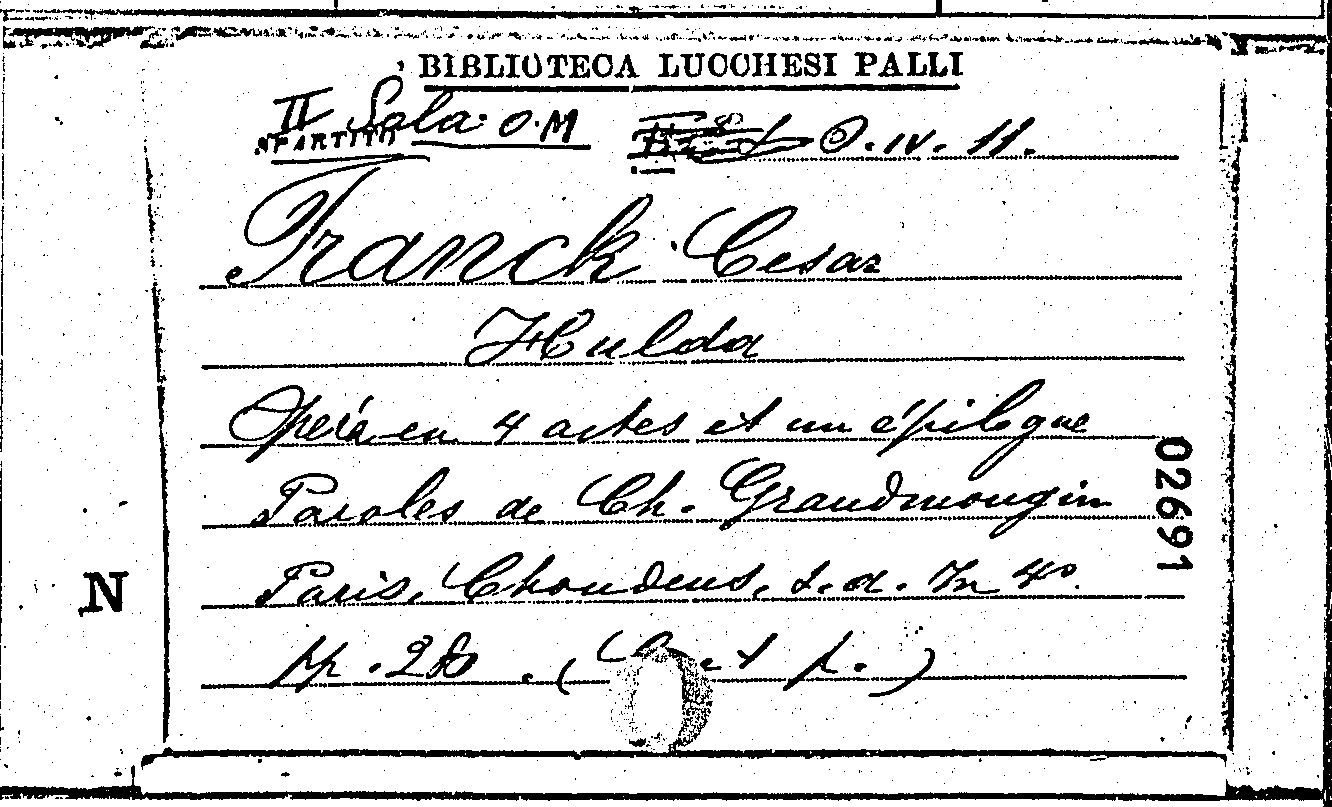 BIBLIOTECA LUCCHESI PALLI
II Sala: O.M O.IV.11.
SPARTITO
Franck Cesar
Hulda
Opéra en 4 actes et un épilogue
Paroles de Ch. Grandmougin
Paris, Choudens, s.d. In 4º
pp. 280. (C. et p.)
02691
N